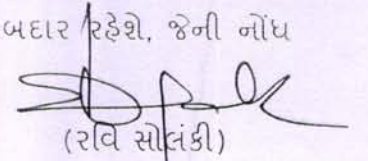 બદાર રહેશે, જેની નોંધ
(રવિ સોલંકી)